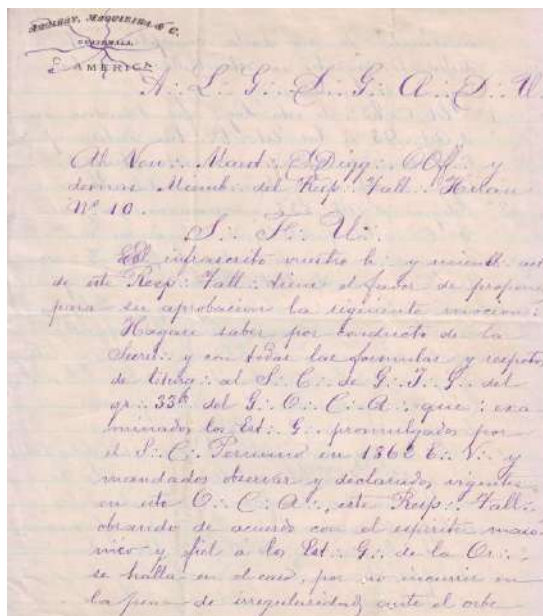 MAQUEIRA & C.
GUATEMALA
C. AMERICA
A∴ L∴ G∴ D∴ G∴ A∴ D∴ U∴
Al Ven∴ Maest∴ DDigg∴ OOf∴ y
demas Miemb∴ del Resp∴ Tall∴
Nº 10.
S∴ F∴ U∴
El infrascrito vuestro h∴ y miemb∴ act
de este Resp∴ Tall∴ tiene el favor de propone
para su aprobacion la siguiente mocion:
Hagase saber por conducto de la
Secret∴ y con todas las formulas y respetos
de liturg∴ al S∴ C∴ de G∴ I∴ G∴ del
gr∴ 33º del G∴ O∴ C∴ A∴ que: exa
minados los Est∴ G∴ promulgados por
el S∴ C∴ Peruano en E∴ V∴ y
mandados observar y declarados vigentes
en este O∴ C∴ A∴ este Resp∴ Tall∴
obrando de acuerdo con el espiritu maso
nico y fiel a los Est∴ G∴ de la Or∴
se halla en el caso, por no incurrir en
la pena de irregularidad ante el orbe